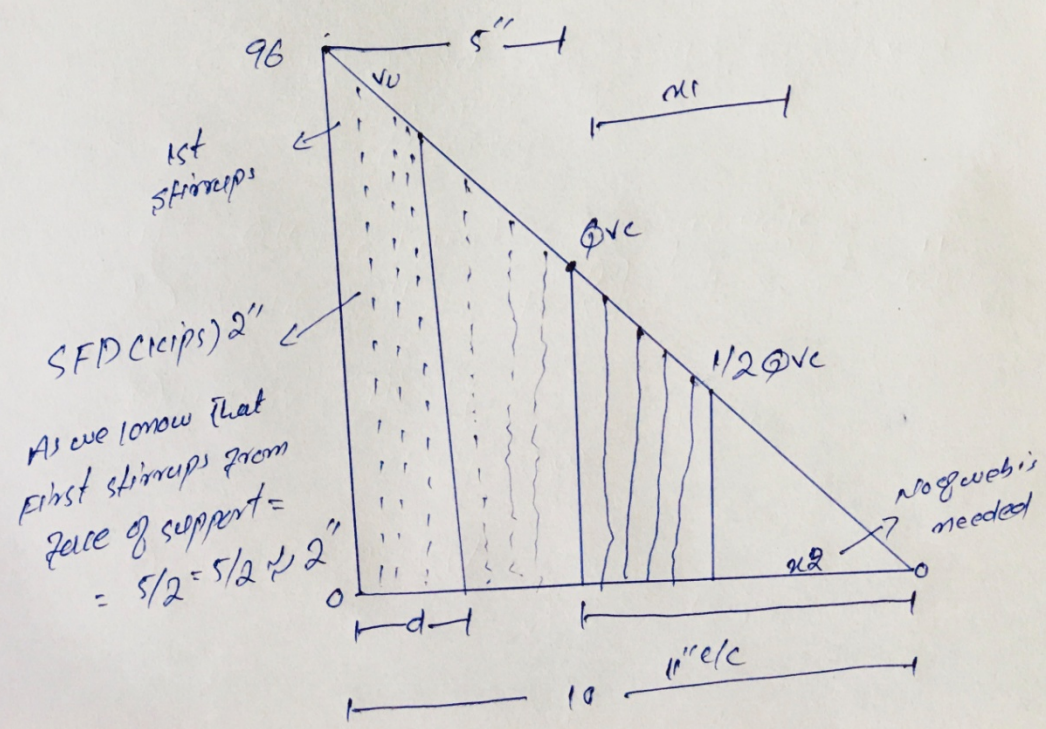 96
5"
Vu
x1
1st
stirrups
φVc
SFD (kips) 2"
1/2 φVc
As we know that
First stirrups from
face of support =
= 5/2 = 5/2 ≈ 2"
No of web is
needed
x2
0
0
d
11" c/c
10